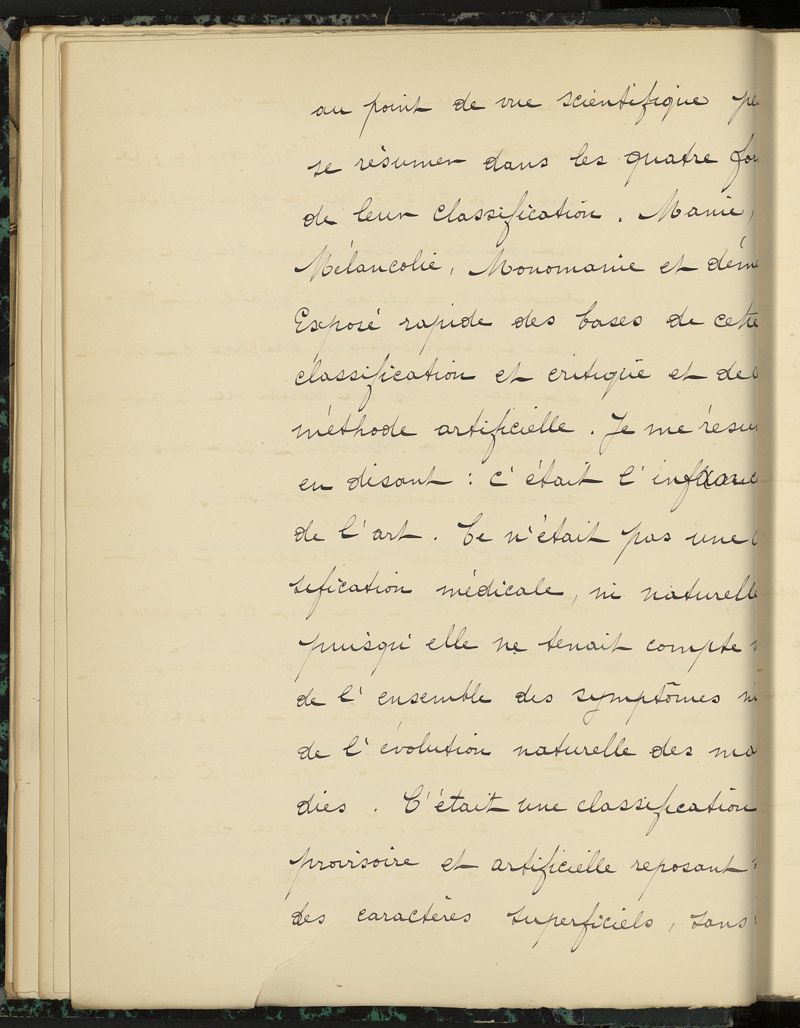 au point de vue scientifique pe
se résumer dans les quatre for
de leur classification. Manie,
Mélancolie, Monomanie et déme
Exposé rapide des bases de cette
classification et critique et de
méthode artificielle. Je me résu
en disant : c'était l'enfanc
de l'art. Ce n'était pas une
sification médicale, ni naturelle
puisqu'elle ne tenait compte n
de l'ensemble des symptômes ni
de l'évolution naturelle des ma
dies. C'était une classification
provisoire et artificielle reposant
des caractères superficiels, sans